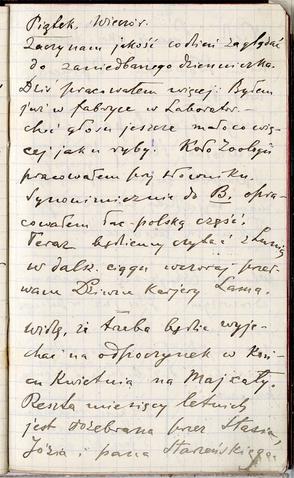 Piątek. Wieczór.
Zaczynam jakoś co dzień zaglądać
do zaniedbanego dzienniczka.
Dziś pracowałem więcej: Byłem
już w fabryce w Laborator.-
choć głosu jeszcze mało co wię-
cej jak u ryby. Koło Zoologii
pracowałem przy słowniku.
Synonimicznie do B. opra-
cowałem łac-polską część.
Teraz będziemy czytać z Lunią
w dalsz. ciągu wczoraj przer-
wane Dziwne Karjery Lasma.
widzę, że trzeba będzie wyje-
chać na odpoczynek w Koń-
cu Kwietnia na Maj cały.
Reszta miesięcy letnich
jest rozebrana przez Stasia,
Józia i pana Starzeńskiego.